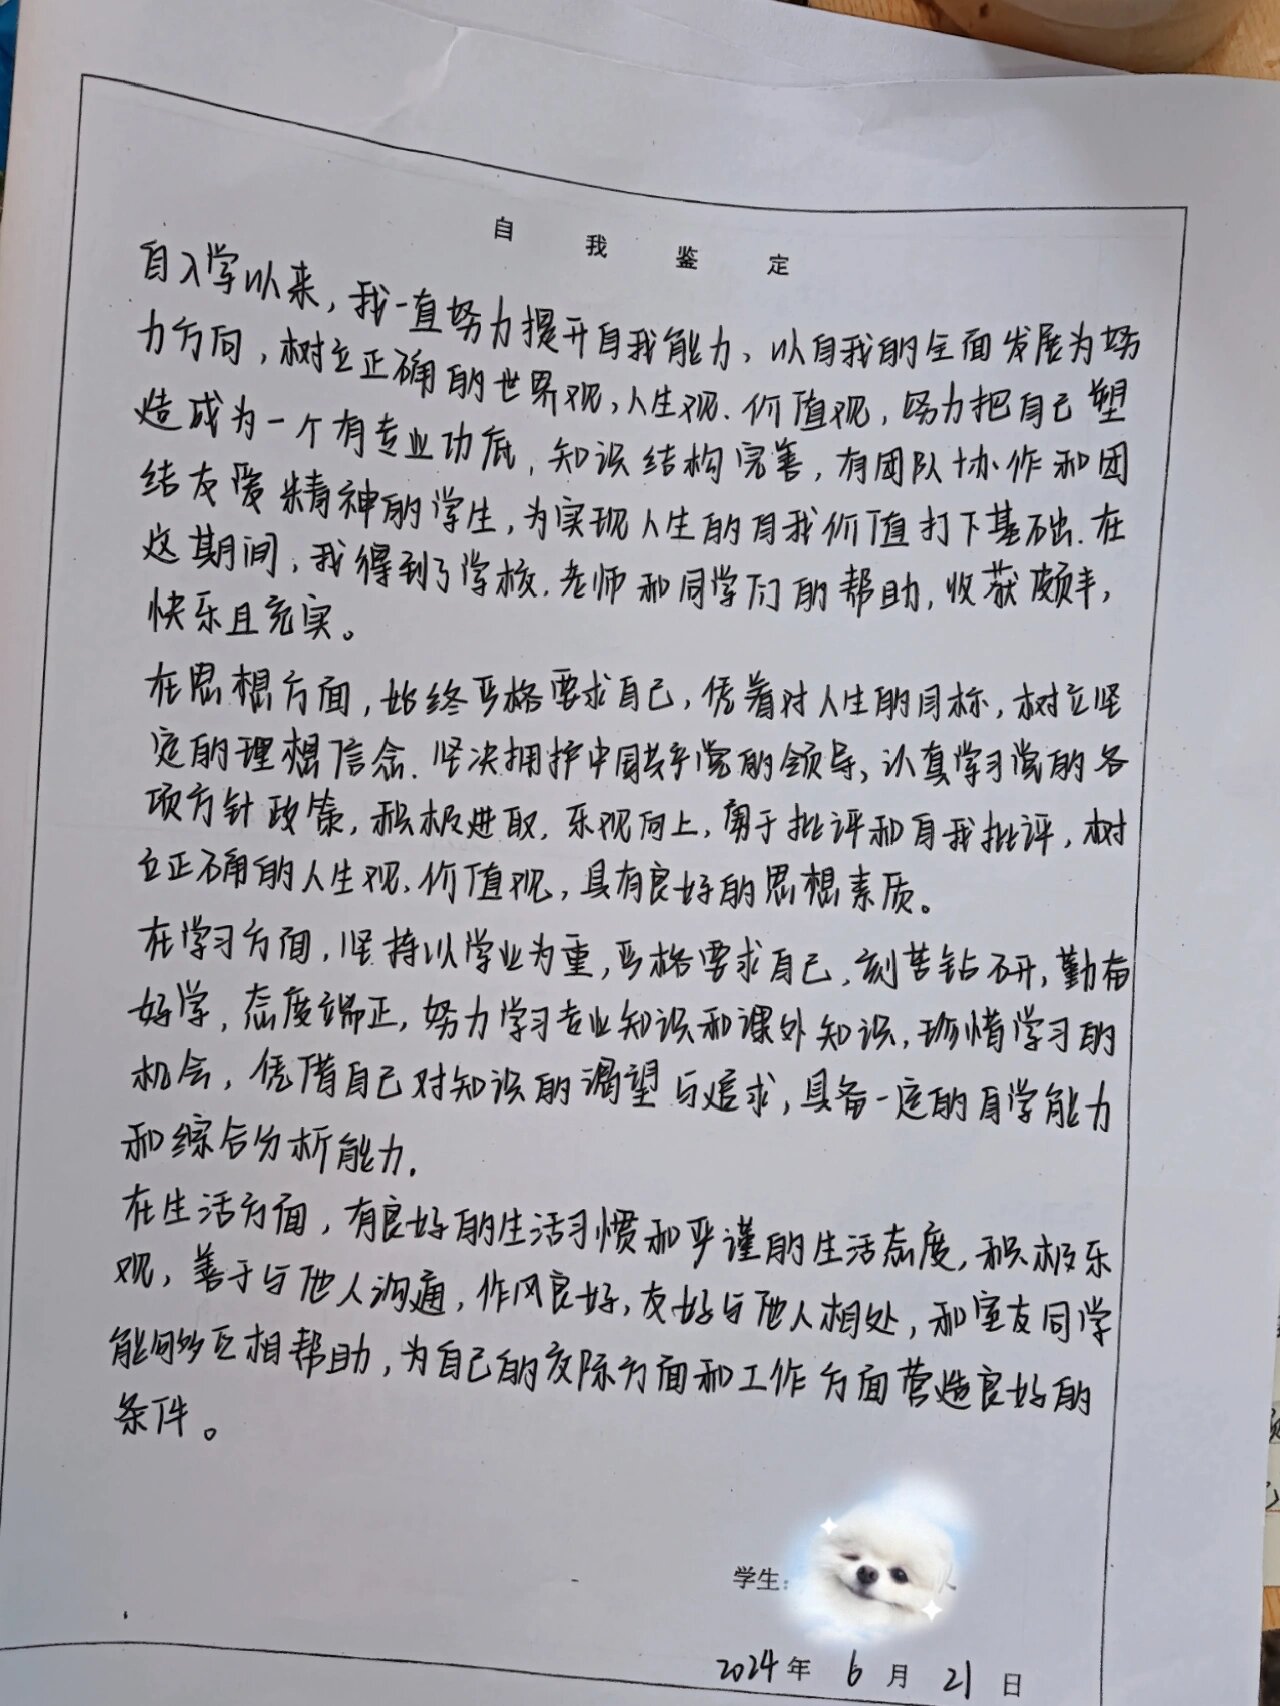 自我鉴定
自入学以来，我一直努力提升自我能力，以自我的全面发展为努
力方向，树立正确的世界观，人生观、价值观，努力把自己塑
造成为一个有专业功底，知识结构完善，有团队协作和团
结友爱精神的学生，为实现人生的自我价值打下基础.在
这期间，我得到了学校、老师和同学们的帮助，收获颇丰，
快乐且充实。
在思想方面，始终严格要求自己，凭着对人生的目标，树立坚
定的理想信念、坚决拥护中国共产党的领导，认真学习党的各
项方针政策，积极进取，乐观向上，勇于批评和自我批评，树
立正确的人生观、价值观，具有良好的思想素质。
在学习方面，坚持以学业为重，严格要求自己，刻苦钻研，勤奋
好学，态度端正，努力学习专业知识和课外知识，珍惜学习的
机会，凭借自己对知识的渴望与追求，具备一定的自学能力
和综合分析能力.
在生活方面，有良好的生活习惯和严谨的生活态度，积极乐
观，善于与他人沟通，作风良好，友好与他人相处，和室友同学
能够互相帮助，为自己的交际方面和工作方面营造良好的
条件。
学生:
2024年 6月 21日